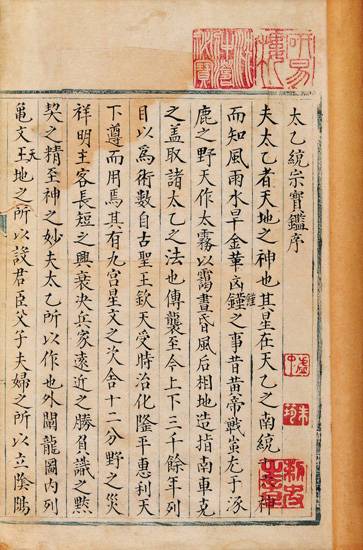 太乙統宗寶鑑序
夫太乙者天地之神也其星在天乙之南統神
而知風雨水旱金革凶饉之事昔黃帝戰蚩尤于涿
鹿之野天作太霧以靄晝昏風后相地造指南車克
之盖取諸太乙之法也傳襲至今上下三千餘年列
目以爲術數自古聖王欽天受時治化隆平惠利天
下遵而用焉其有九宮星文之次舍十二分野之災
祥明主客長短之興衰决兵家遠近之勝負識之黙
契之精至神之妙夫太乙所以作也外闢龍圖内列
龜文王天地之所以設君臣父子夫婦之所以立陰隲